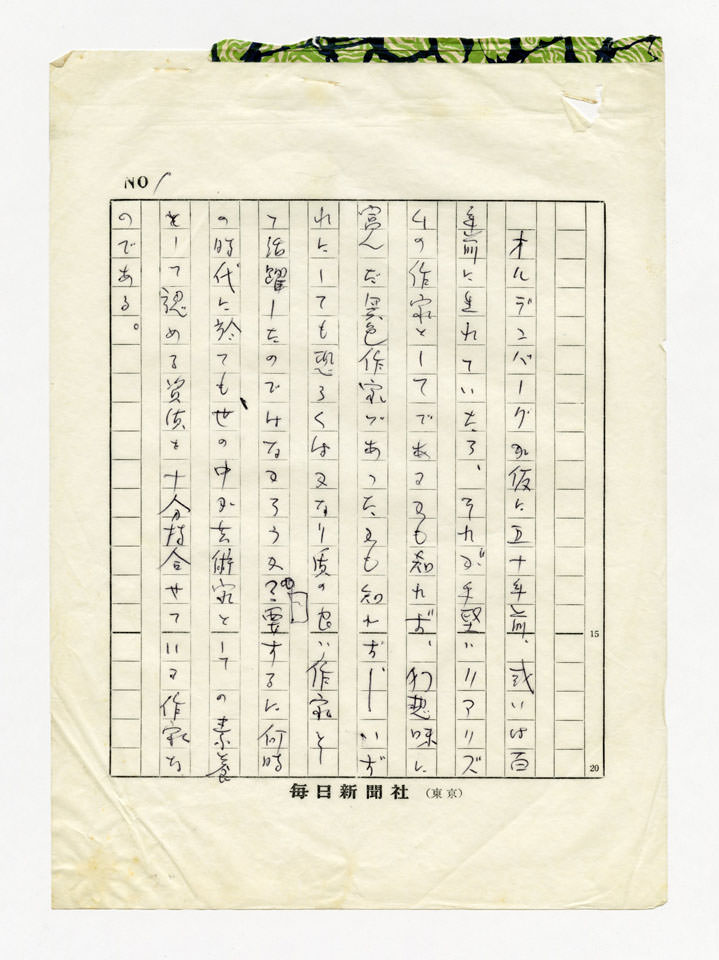 NO 1
オルデンバーグが仮に五十年前、或いは百
年前に生れていたら、それが手堅いリアリズ
ムの作家としてであるかも知れず、幻想味に
富んだ異色作家であったかも知れず―いず
れにしても恐らくはかなり質の良い作家とし
て活躍したのではなかろうか。要するに何時
の時代に於ても世の中が芸術家としての素養
として認める資質を十分持合せている作家な
のである。
15
20
毎日新聞社（東京）